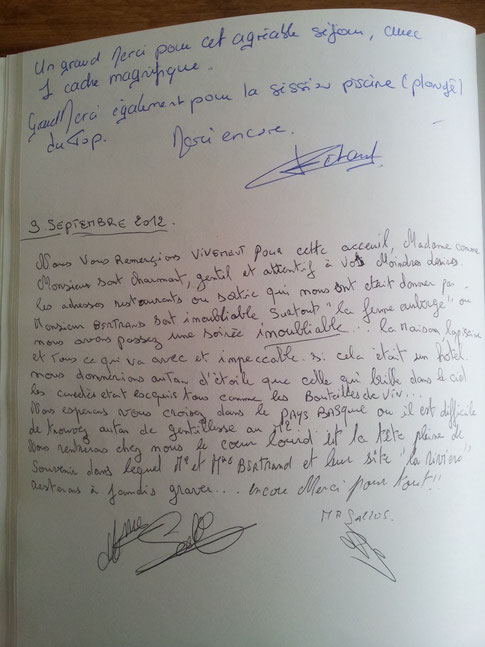 Un grand Merci pour cet agréable séjour, avec
1 cadre magnifique.
Grand Merci également pour la session piscine (plongé)
du Top.
Merci encore.
9. SEPTEMBRE 2012.
Nous Vous Remerçions Vivement pour cette acceuil, Madame comme
Monsieur sont charmant, gentil et attentif à Vos Moindres desires
les adresses restaurants ou sortie qui nous ont était donner par
Monsieur BERTRAND sont inoubliable surtout "la ferme auberge" ou
nous avons passez une soirée inoubliable... la Maison la piscine
et tous ce qui va avec et impeccable. si cela était un hôtel
nous donnerions autan d'étoile que celle qui brille dans le ciel
les etait tous comme les Bouteilles de
Nous esperons vous croisez dans le PAYS BASQUE ou il est difficile
de trouvez autan de gentillesse au
Nous rentrerons chez nous le cœur lourd et la tête pleine de
souvenir dans lequel Mr et Mme BERTRAND et leur site "la rivière"
resterons à jamais graver... encore Merci pour tout!!
Mr SALLUS.